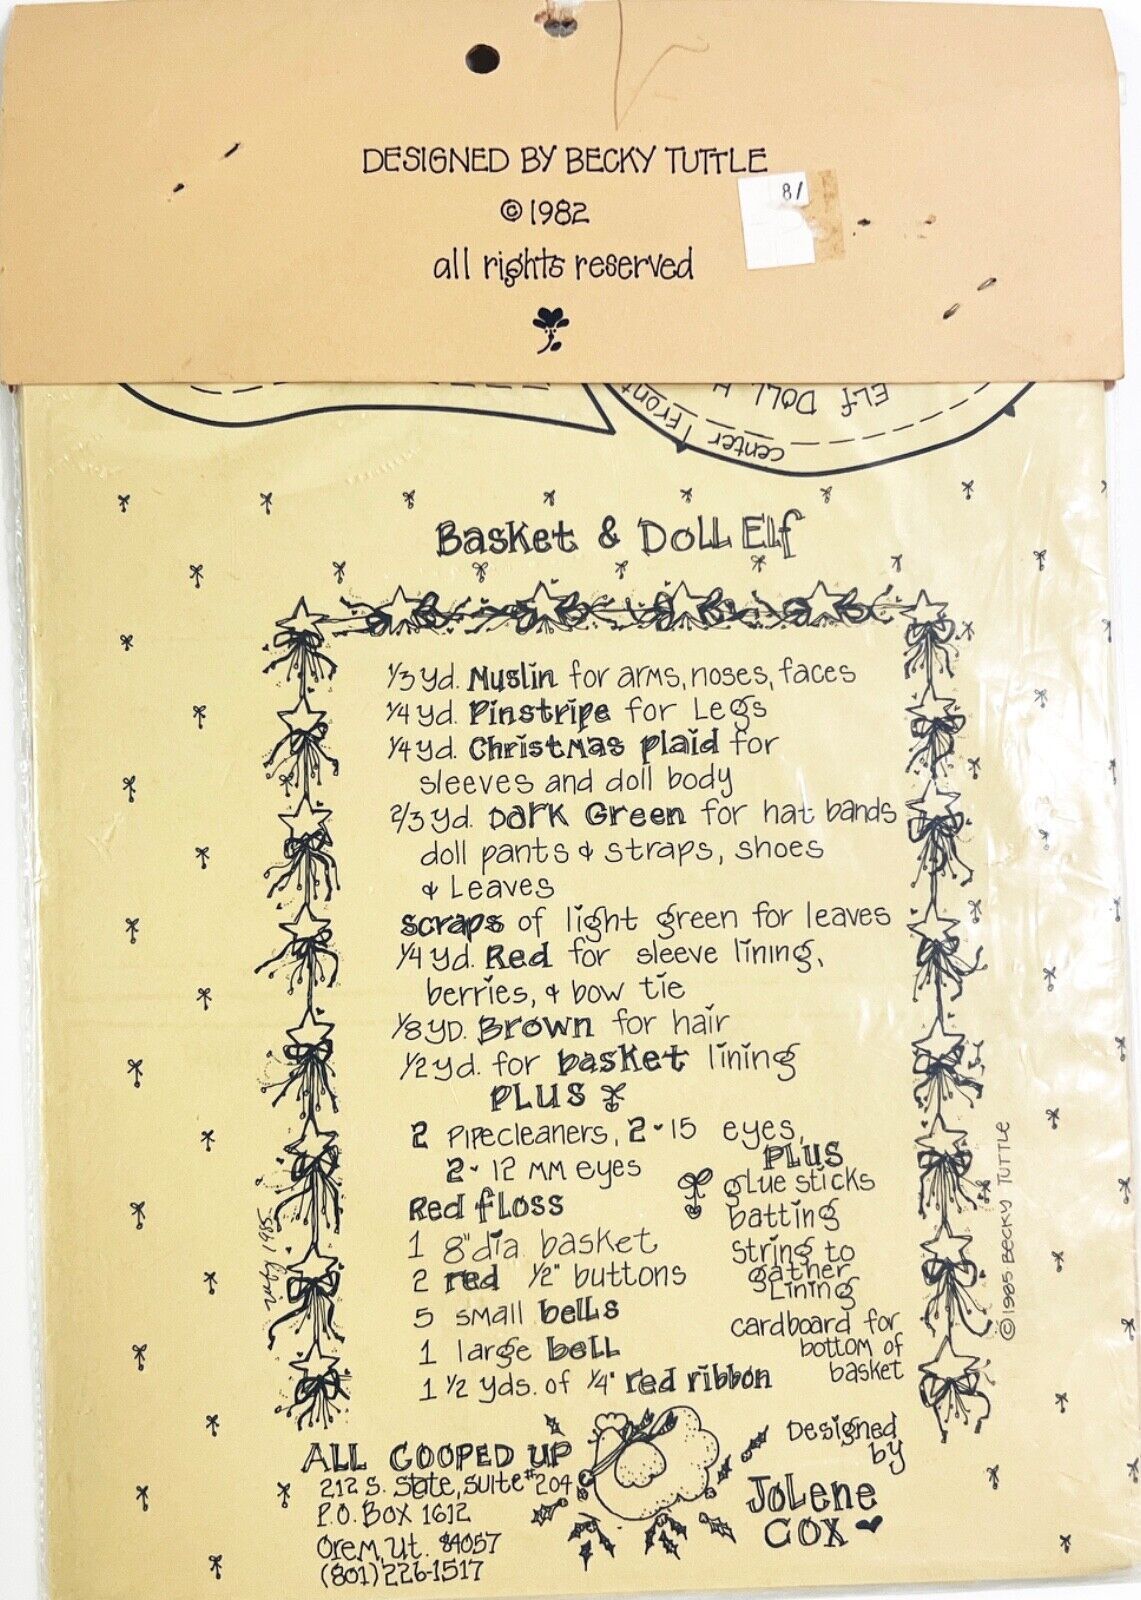 DESIGNED BY BECKY TUTTLE
8/
© 1982
all rights reserved
ELF DOLL
center Front
Basket & DOLL Elf
1/3 yd. Muslin for arms, noses, faces
1/4 yd. Pinstripe for Legs
1/4 yd. Christmas plaid for
sleeves and doll body
2/3 yd. Dark Green for hat bands
doll pants & straps, shoes
& Leaves
scraps of light green for leaves
1/4 yd. Red for sleeve lining,
berries, & bow tie
1/8 YD. Brown for hair
1/2 yd. for basket lining
PLUS
2 Pipecleaners, 2-15 eyes,
2-12 MM eyes
Red floss
1 8" dia. basket
2 red 1/2" buttons
5 small bells
1 large bell
1 1/2 yds. of 1/4" red ribbon
PLUS
glue sticks
batting
string to
gather
Lining
cardboard for
bottom of
basket
© 1985 BECKY TUTTLE
1985
ALL COOPED UP
212 S. State, Suite #204
P.O. Box 1612
Orem, Ut. 84057
(801) 226-1517
Designed
by
Jolene
Cox